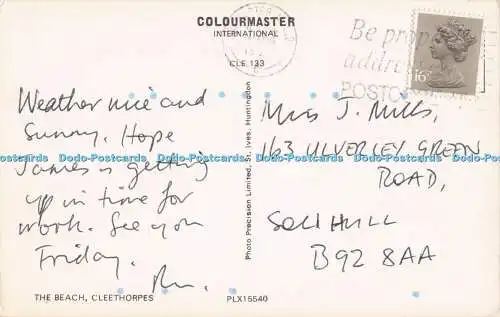 COLOURMASTER
INTERNATIONAL
CLE 133
Be prop
addre
POSTCO
16
Weather nice and
Sunny. Hope
James is getting
up in time for
work. See you
Friday.
Miss J. Mills,
163 ULVERLEY GREEN
ROAD,
SOLIHULL
B92 8AA
Photo Precision Limited, St. Ives, Huntingdon
THE BEACH, CLEETHORPES
PLX15540
Dodo-Postcards Dodo-Postcards Dodo-Postcards Dodo-Postcards Dodo-Postcards Dodo-Postcards